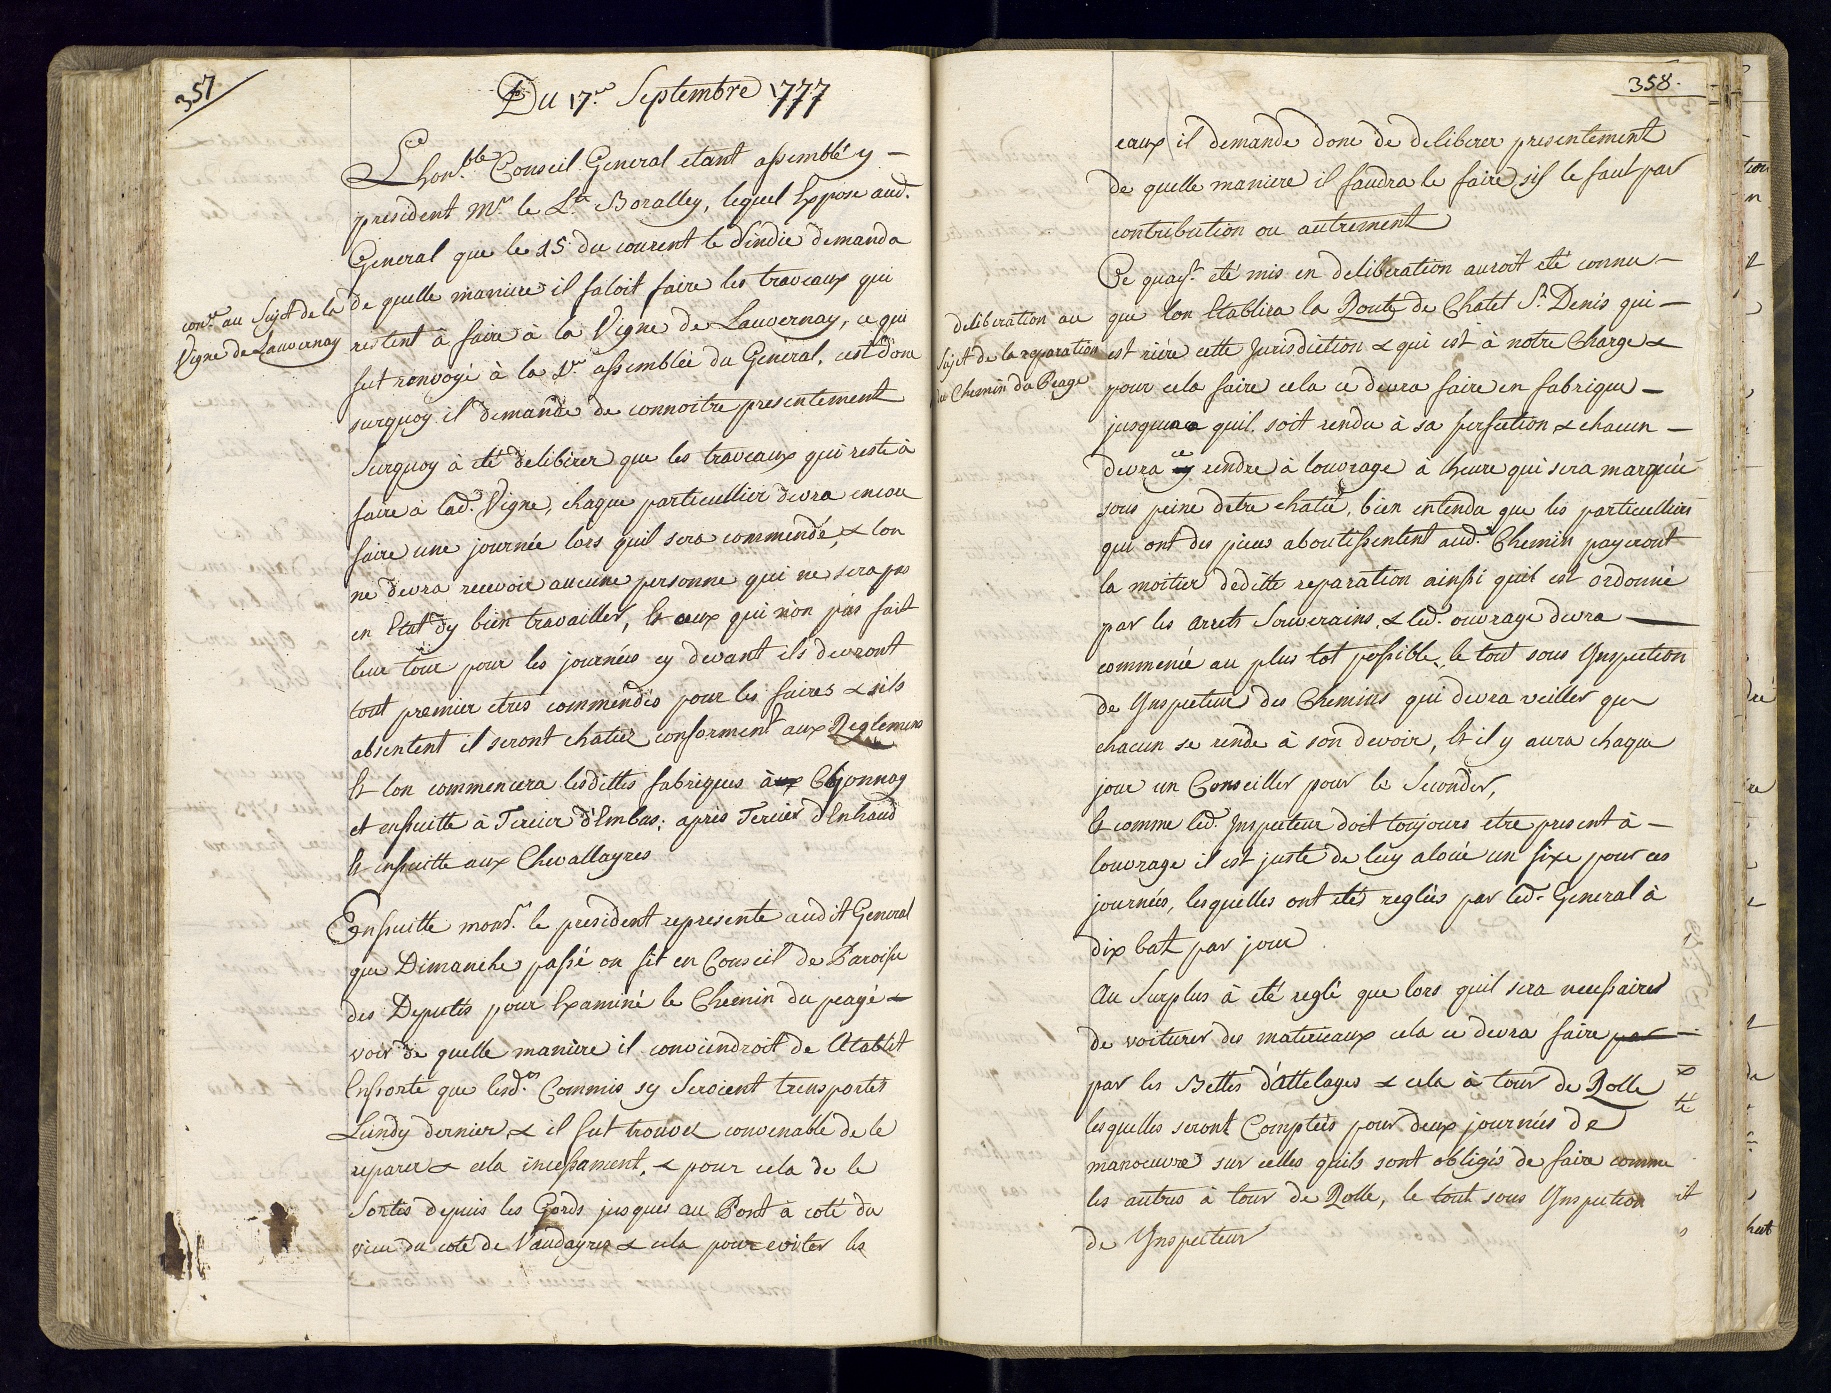 357
Du 17.e Septembre 1777
Lhon.ble Conseil General etant assemblé y
president Mr. le Lt. Boralley, lequel Expose aud.
General que le 15 du courent le Sindic demanda
de quelle maniere il faloit faire les traveaux qui
conr. au Sujet de la
Vigne de Lauvernay
restent à faire à la Vigne de Lauvernay, ce qui
fut renvoyé à la 1re assemblée du General, cest donc
surquoy il demande de connoitre presentement
Surquoy à eté deliberer que les traveaux qui reste à
faire à lad. Vigne, chaque particullier devra encore
faire une journée lors quil sera commendé, & lon
ne devra recevoir aucune personne qui ne sera pas
en Etat d'y bien travailler, Et ceux qui n'on pas fait
leur tour pour les journées cy devant ils devront
tout premier etres commendés pour les faires & sils
absentent il seront chatiez conforment aux Reglemens
Et lon commencera lesdittes fabriques à Chjonnay
et ensuitte à Tercier d'Embas; après Tercier d'Enhaud
Et ensuitte aux Chevallayres
Ensuitte monsr. le president represente audit General
que Dimanche passé on fit en Conseil de Paroisse
des Deputés pour Examiné le Chemin du peage &
voir de quelle maniere il conviendroit de létablit
Ensorte que lesd.es Commis sy Seroient trensportés
Lundy dernier, & il fut trouvez convenable de le
reparer & cela incessament, & pour cela de le
Sortir depuis les Gords jusques au Pont à coté du
vieu du coté de Vaudayres & cela pour eviter les
358
eaux il demande donc de deliberer presentement
de quelle maniere il faudra le faire, sil le faut par
contribution ou autrement
Ce quayt. eté mis en deliberation auroit eté connu
deliberation au
Sujet de la reparation
du Chemin du Peage
que lon Etablira la Route de Chatel St. Denis qui
est riére cette Jurisdiction & qui est à notre Charge &
pour cela faire cela ce devra faire en fabrique
jusqua quil soit rendu à sa perfection & chacun
devra ce rendre à louvrage à lheure qui sera marquée
sous peine detre chatié, bien entendu que les particulliers
qui ont des pieces aboutissentent aud. Chemin payeront
la moitier deditte reparation ainssi quil est ordonné
par les arrets Souverains, & led. ouvrage devra
commencé au plus tot possible, le tout sous Ynspection
de Ynspecteur des Chemins qui devra veiller que
chacun se rende à son devoir, Et il y aura chaque
jour un Conseiller pour le Seconder,
Et comme led. Inspecteur doit toujours etre present à
louvrage il est juste de luy aloué un fixe pour ces
journées, lesquelles ont eté reglées par led. General à
dix batz par jour
Au Surplus à eté reglé que lors quil sera necessaires
de voiturer des materieaux cela ce devra faire par
par les Bettes d'attelages & cela à tour de Rolle
lesquelles seront Comptées pour deux journées de
manoeuvre sur celles quils sont obligés de faire comme
les autres à tour de Rolle, le tout sous Ynspection
de Ynspecteur